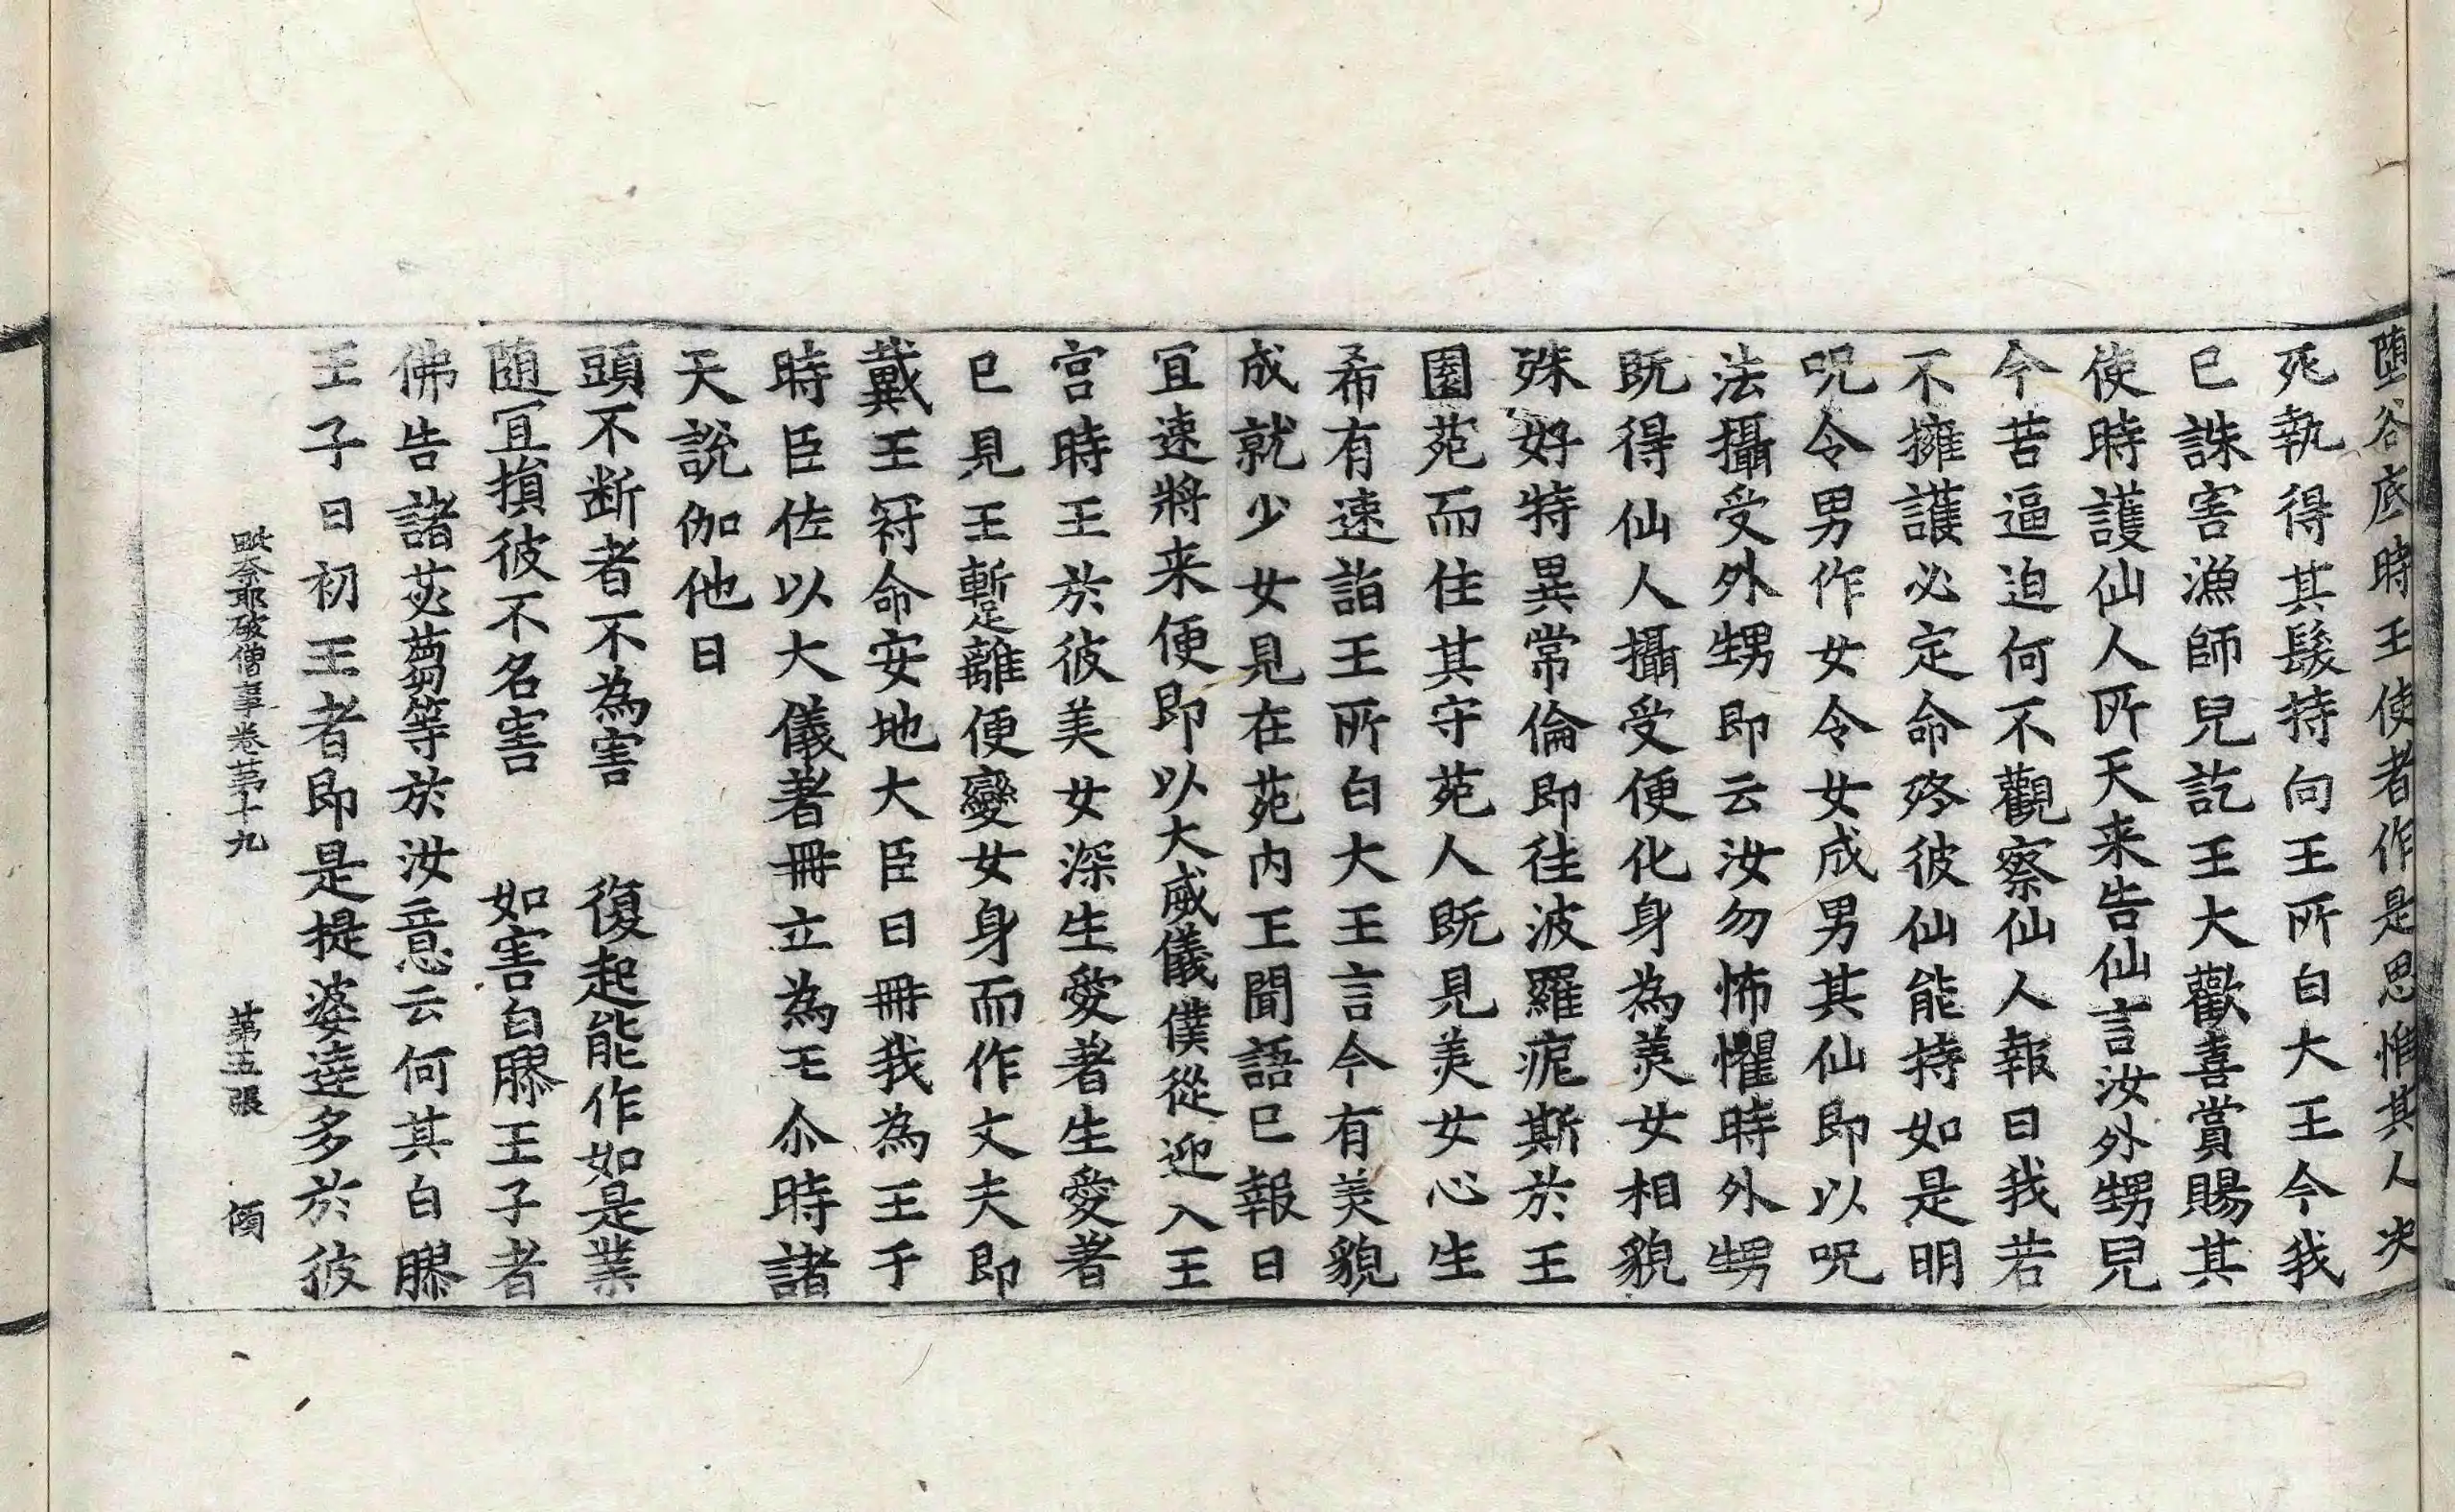 堕谷底時王使者作是思惟其人决
死執得其髮持向王所白大王今我
巳誅害漁師兒訖王大歡喜賞賜其
使時護仙人所天来告仙言汝外甥兒
今苦逼迫何不觀察仙人報曰我若
不擁護必定命殁彼仙能持如是明
呪令男作女令女成男其仙即以呪
法攝受外甥即云汝勿怖懼時外甥
既得仙人攝受便化身為羙女相貌
殊好特異常倫即往波羅痆斯於王
園苑而住其守苑人既見羙女心生
希有速詣王所白大王言今有羙貌
成就少女見在苑内王聞語巳報曰
冝速將来便即以大威儀僕從迎入王
宫時王於彼美女深生愛著生愛著
巳見王暫離便變女身而作丈夫即
戴王冠命安地大臣曰冊我為王于
時臣佐以大儀著冊立為王尒時諸
天說伽他曰
頭不断者不為害　復起能作如是業
随冝損彼不名害　如害白膠王子者
佛告諸苾蒭等於汝意云何其白膠
王子曰初王者即是提婆逹多於彼
毗奈耶破僧事卷苐十九　苐五張　傾